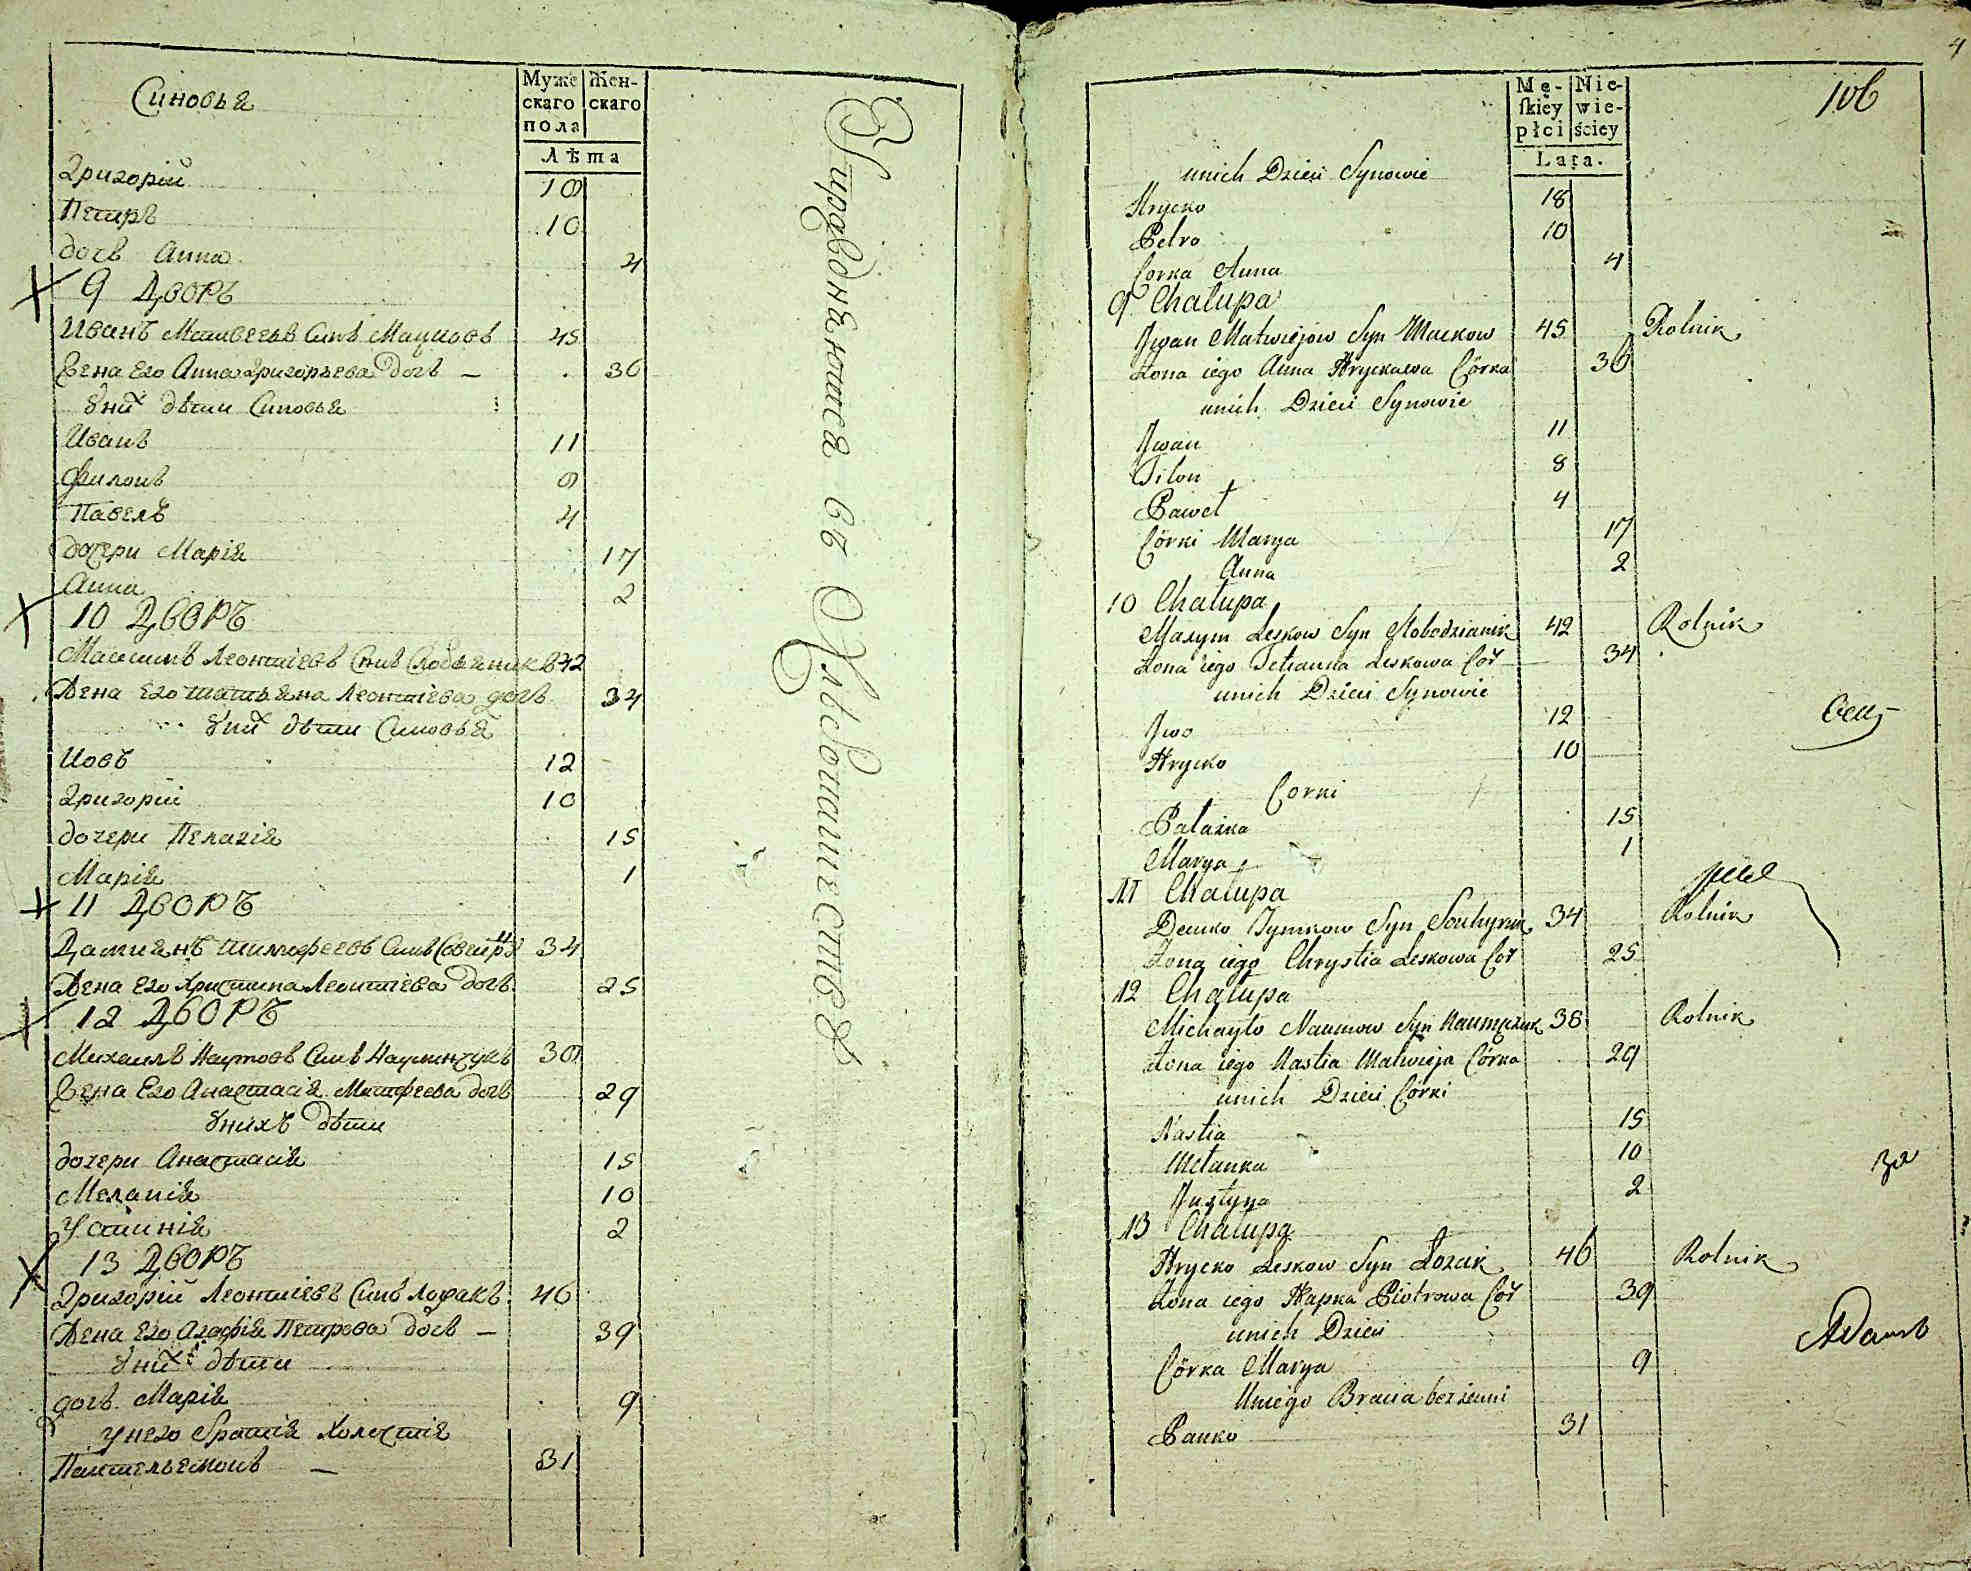 Синовья
Муже-
скаго
пола
Жен-
скаго
Лѣта
Григорій 18
Петръ 10
дочь Анна 4
9 Дворъ
Иванъ Матвеевъ Синъ Мацковъ 45
Жена Его Анна Григорьева дочь — 36
Уних дѣти Синовья
Иванъ 11
Филонъ 8
Павелъ 4
дочери Марія 17
Анна 2
10 Дворъ
Максимъ Леонтіевъ Синъ Слободяникъ 42
Жена Его татьяна Леонтіева дочь 34
Уних дѣти Синовья
Иовъ 12
Григорій 10
дочери Пелагія 15
Марія 1
11 Дворъ
Дамианъ тимофеевъ Синъ 34
Жена Его Христина Леонтіева дочь 25
12 Дворъ
Михаилъ Наумовъ Синъ Наумчукъ 38
Жена Его Анастасія Матфеева дочь 29
Унихъ дѣти
дочери Анастасія 15
Меланія 10
Устинія 2
13 Дворъ
Григорій Леонтіевъ Синъ Лозакъ 46
Жена Его Агафія Петрова дочь — 39
Уних дѣти
дочь Марія 9
Унего братія холостія
Пантелеемонъ — 31
Упражняются въ Хлебопашестве
4
Mę-
skiey
płci
Nie-
wie-
ściey
Lata.
106
unich Dzieci Synowie
Hrycko 18
Petro 10
Corka Anna 4
9 Chałupa
Jwan Matwiejow Syn Mackow 45 Rolnik
Zona iego Anna Hryckowa Córka 36
unich Dzieci Synowie
Jwan 11
Filon 8
Paweł 4
Córki Marya 17
Anna 2
10 Chałupa
Maxym Leskow Syn Słobodzianik 42 Rolnik
Zona iego Tetianna Leskowa Cór 34
unich Dzieci Synowie
Jwo 12
Hrycko 10
Corki
Pałażka 15
Marya 1
11 Chałupa
Demko Tymkow Syn 34 Rolnik
Zona iego Chrystia Leskowa Cór 25
12 Chałupa
Michayło Naumow Syn Naumczuk 38 Rolnik
Zona iego Nastia Matwieja Córka 29
unich Dzieci Córki
Nastia 15
Mełanka 10
Justyna 2
за
13 Chałupa
Hrycko Leskow Syn Łozak 46 Rolnik
Zona iego Hapka Piotrowa Cór 39
unich Dzieci
Córka Marya 9
Uniego Bracia bezżenni
Panko 31